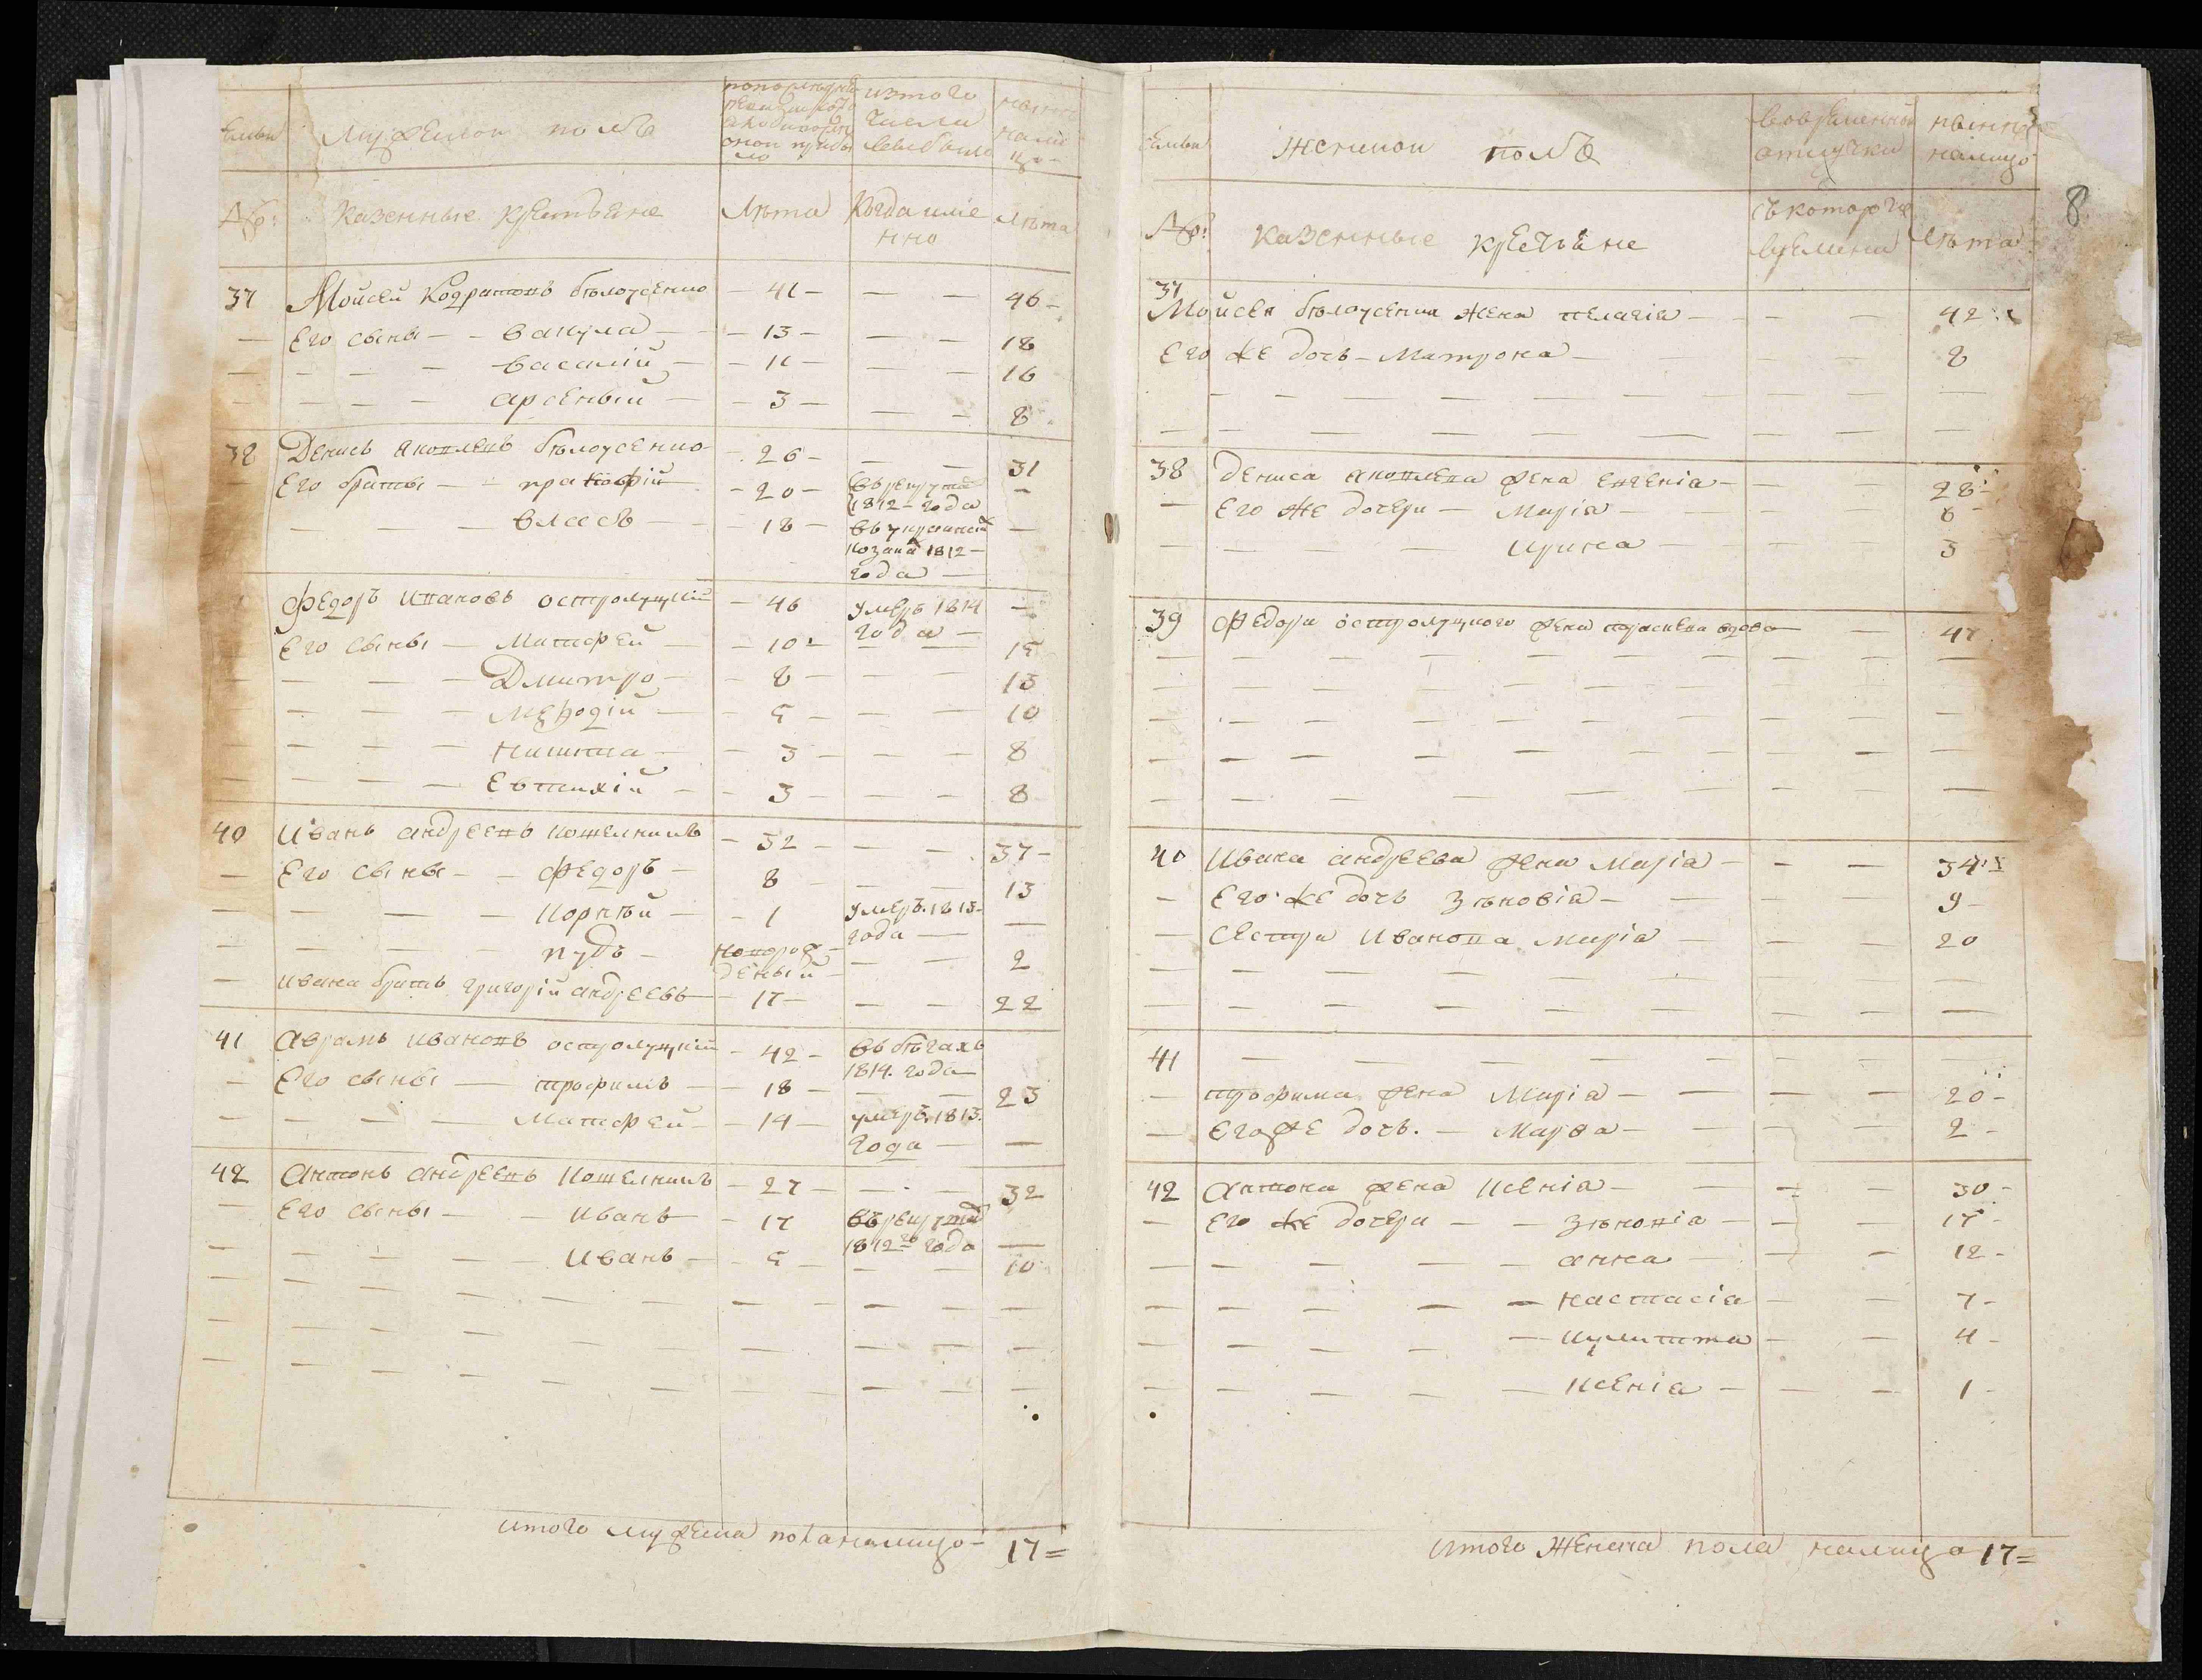 мужескои полъ
изтого числа выбыло
№:
казенные крестьяне
Лѣта
Когда имянно
Лѣта
37 Мойсей Кодратовъ бѣлоусенко - 41 - — — 46 -
— Его сыны - - Вакула - - 13 - — — 18
— — — — Василій - - 11 - — — 16
— — — — Арсеній - - 3 - — — 8
38 Денисъ Яковлевъ бѣлоусенко - 26 - — — 31
— Его браты - - - 20 - въ рекруты —
1812 - года
— — — Власъ - - 18 - въ украинскіи —
козаки 1812 -
года —
Федоръ Ивановъ остролуцкій - 46 умеръ 1814 —
года —
Его сыны — Матфей - - 10 - — — 15
— — — — Дмитро - - 8 - — — 13
— — — — Мефодій - - 5 - — — 10
— — — — Никита - - 3 - — — 8
— — — — Евтихій - - 3 - — — 8
40 Иванъ Андреевъ Кошелникъ - 32 - — — 37 -
— Его сыны - - Федоръ - 8 - — — 13
— — — — Корнѣй - - 1 умеръ. 1813 -
года — —
— — — — пудъ - новорож
деный — — 2
— Ивана братъ григорій андреевъ - 17 - — — 22
41 Аврамъ Ивановъ остролуцкій - 42 - въ бѣгахъ
1814. года —
— Его сыны — трофимъ - - 18 - — — 23
— — — — Матфей - - 14 - умеръ. 1813.
года — —
42 Антонъ Андреевъ Кошелникъ - 27 - — — 32
— Его сыны - - Иванъ - 17 въ рекруты
1812го года —
— — — — Иванъ - - 5 - — — 10
итого мужеска пола налицо - 17 =
8.
женскои полъ
вовременной отлучки
нынѣ налицо
№:
казенные крестьяне
съ котораго времени
Лѣта
37
Мойсея бѣлоусенка жена пелагія - - — 42
Его же дочь - Матрона - 8
38 Дениса Яковлева жена Евгенія - - — 28 -
— Его же дочери - Марія - 6 -
— — — Ирина - 3
39 Федора остролуцкого жена параскева вдова — 47
40 Ивана Андреева жена Марія - - — 34
— Его же дочь Зѣновія - 9 -
— Сестра Иванова Марія 20
41 — — — —
— трофима жена Марія - — 20 -
— Его же дочь. - Марфа - 2 -
42 Антона жена Ксенія - — 30 -
— Его же дочери - - Зѣновія - 17 -
— — — — — анна 12 -
— — — — — настасія - 7 -
— — — — — Иулитта - 4 -
— — — — — Ксенія - 1 -
Итого Женска пола налицо 17 =